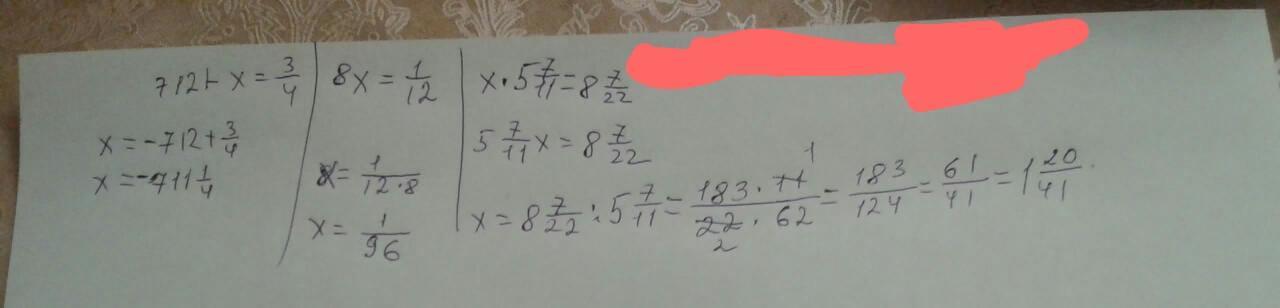 712+ x = 3/4
x = -712 + 3/4
x = -711 1/4
8x = 1/12
x = 1/(12·8)
x = 1/96
x · 5 7/11 = 8 7/22
5 7/11 x = 8 7/22
x = 8 7/22 : 5 7/11 = (183 · 11 1)/(22 2 · 62) = 183/124 = 61/41 = 1 20/41.